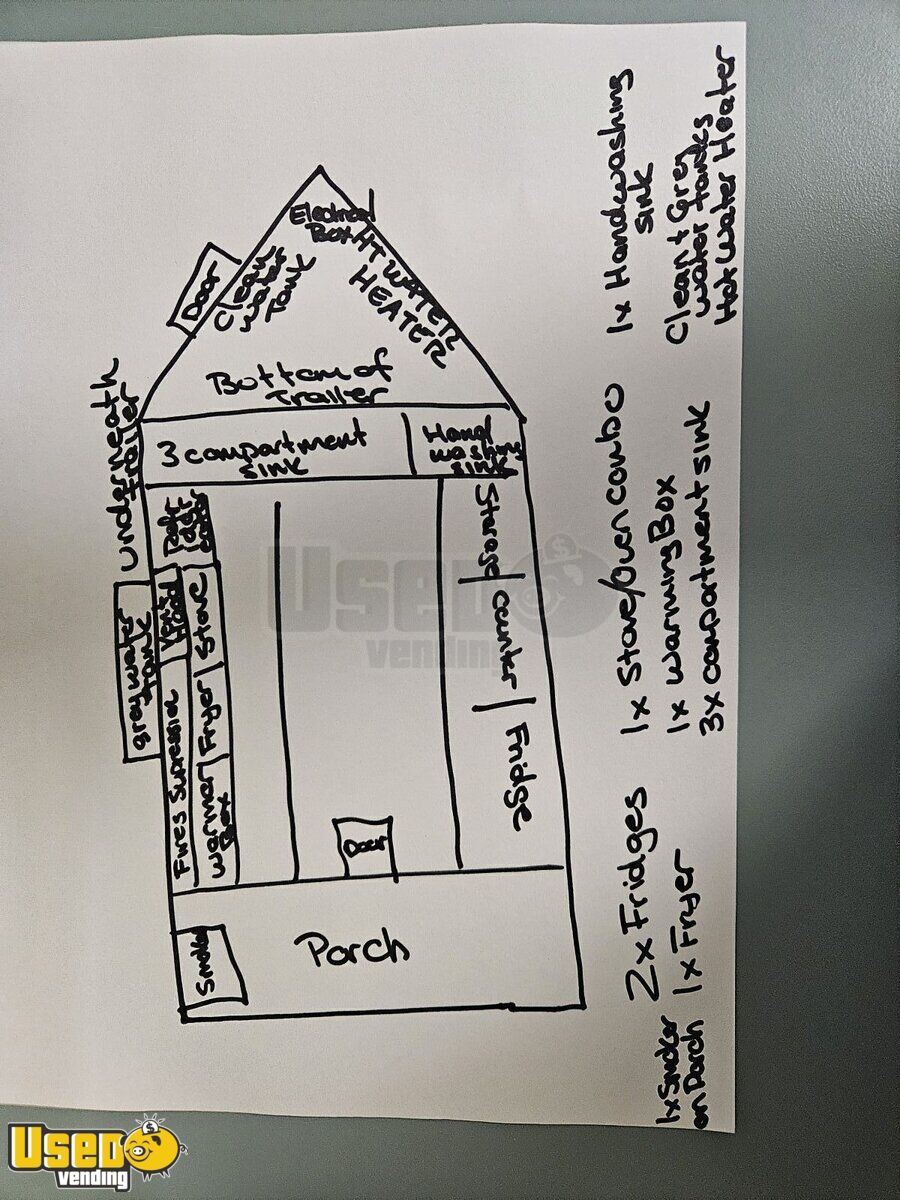 Electrical
Box
Hot WATER
HEATER
Door
Clean
water
Tank
Bottom of
Trailer
underneath
trailer
3 compartment
sink
Hand
washing
sink
grey water
tank
Vent
Hood
Stove
Fires Supression
Fryer
Warmer
Box
Storage
Counter
Fridge
Door
Smoker
Porch
2x Fridges
1x Stove/Oven combo
1x Handwashing
sink
1x Smoker
on Porch
1x Fryer
1x Warming Box
3x compartment sink
Clean + Grey
water tanks
Hot Water Heater
Used
vending
Used
vending